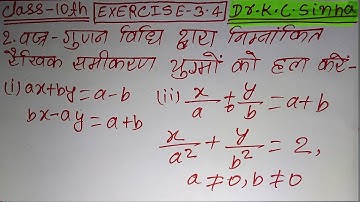 Class-10th EXERCISE-3.4 Dr.K.C.Sinha
2. वज्र-गुणन विधि द्वारा निम्नांकित
रैखिक समीकरण युग्मों को हल करें-
(i) ax+by=a-b (ii) x/a + y/b = a+b
bx-ay=a+b
x/a² + y/b² = 2,
a≠0, b≠0